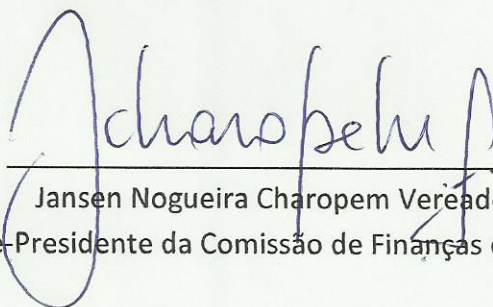 Jansen Nogueira Charopem Veread
-Presidente da Comissão de Finanças